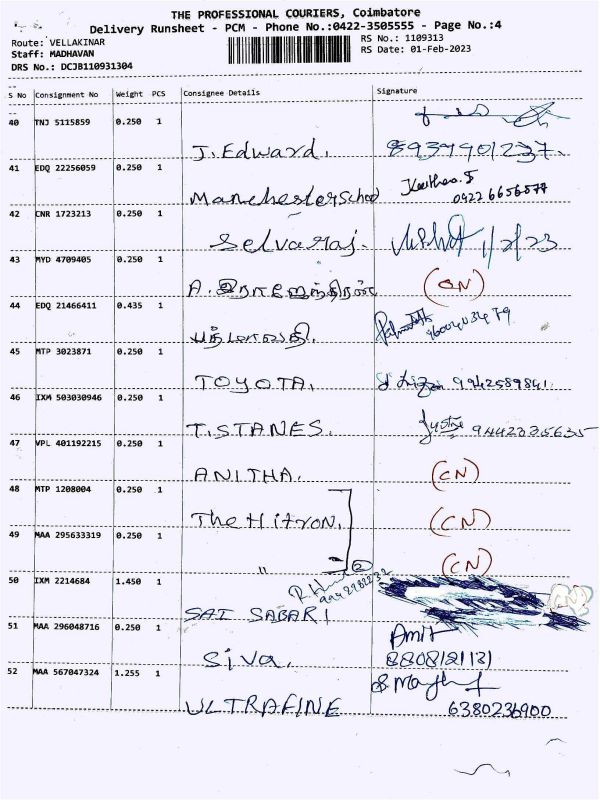 THE PROFESSIONAL COURIERS, Coimbatore
Delivery Runsheet - PCM - Phone No.:0422-3505555 - Page No.:4
Route: VELLAKINAR
RS No.: 1109313
Staff: MADHAVAN
RS Date: 01-Feb-2023
DRS No.: DCJB110931304
S No Consignment No Weight PCS Consignee Details Signature
40 TNJ 5115859 0.250 1
J. Edward. 8939901237.
41 EDQ 22256059 0.250 1
Manchester School 0422 6656577
42 CNR 1723213 0.250 1
Selvaraj. 1/2/23
43 MYD 4709405 0.250 1
A. இராஜேந்திரன் (CN)
44 EDQ 21466411 0.435 1
பத்மாவதி. 9600403479
45 MTP 3023871 0.250 1
TOYOTA. 9942589841
46 IXM 503030946 0.250 1
T. STANES. 9442335635
47 VPL 401192215 0.250 1
ANITHA. (CN)
48 MTP 1208004 0.250 1
The Hitron. (CN)
49 MAA 295633319 0.250 1
" (2) (CN)
50 IXM 2214684 1.450 1
SAI SABARI
51 MAA 296048716 0.250 1
Amit
Siva. 8808121131
52 MAA 567047324 1.255 1
ULTRAFINE 6380236900